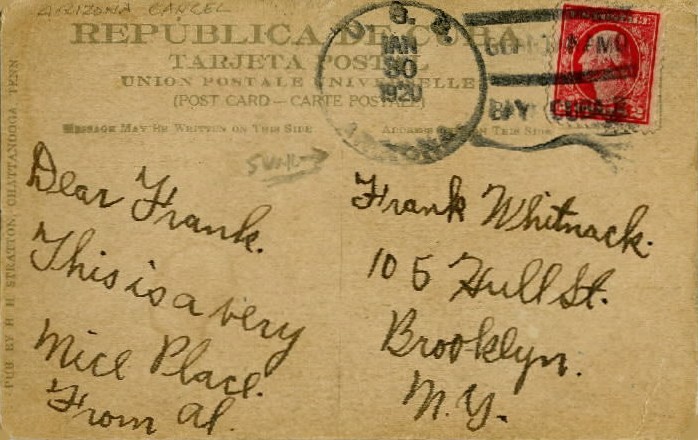 ARIZONA CANCEL
REPÚBLICA DE CUBA
TARJETA POSTAL
UNION POSTALE UNIVERSELLE
(POST CARD – CARTE POSTALE)
MESSAGE MAY BE WRITTEN ON THIS SIDE
ADDRESS ON THIS SIDE
U. S. S.
JAN
30
1920
ARIZONA
BAY CUBA
PUB BY H H STRATTON, CHATTANOOGA TENN
Dear Frank.
This is a very
Nice Place.
From Al.
Frank Whitnack.
105 Hull St.
Brooklyn.
N.Y.